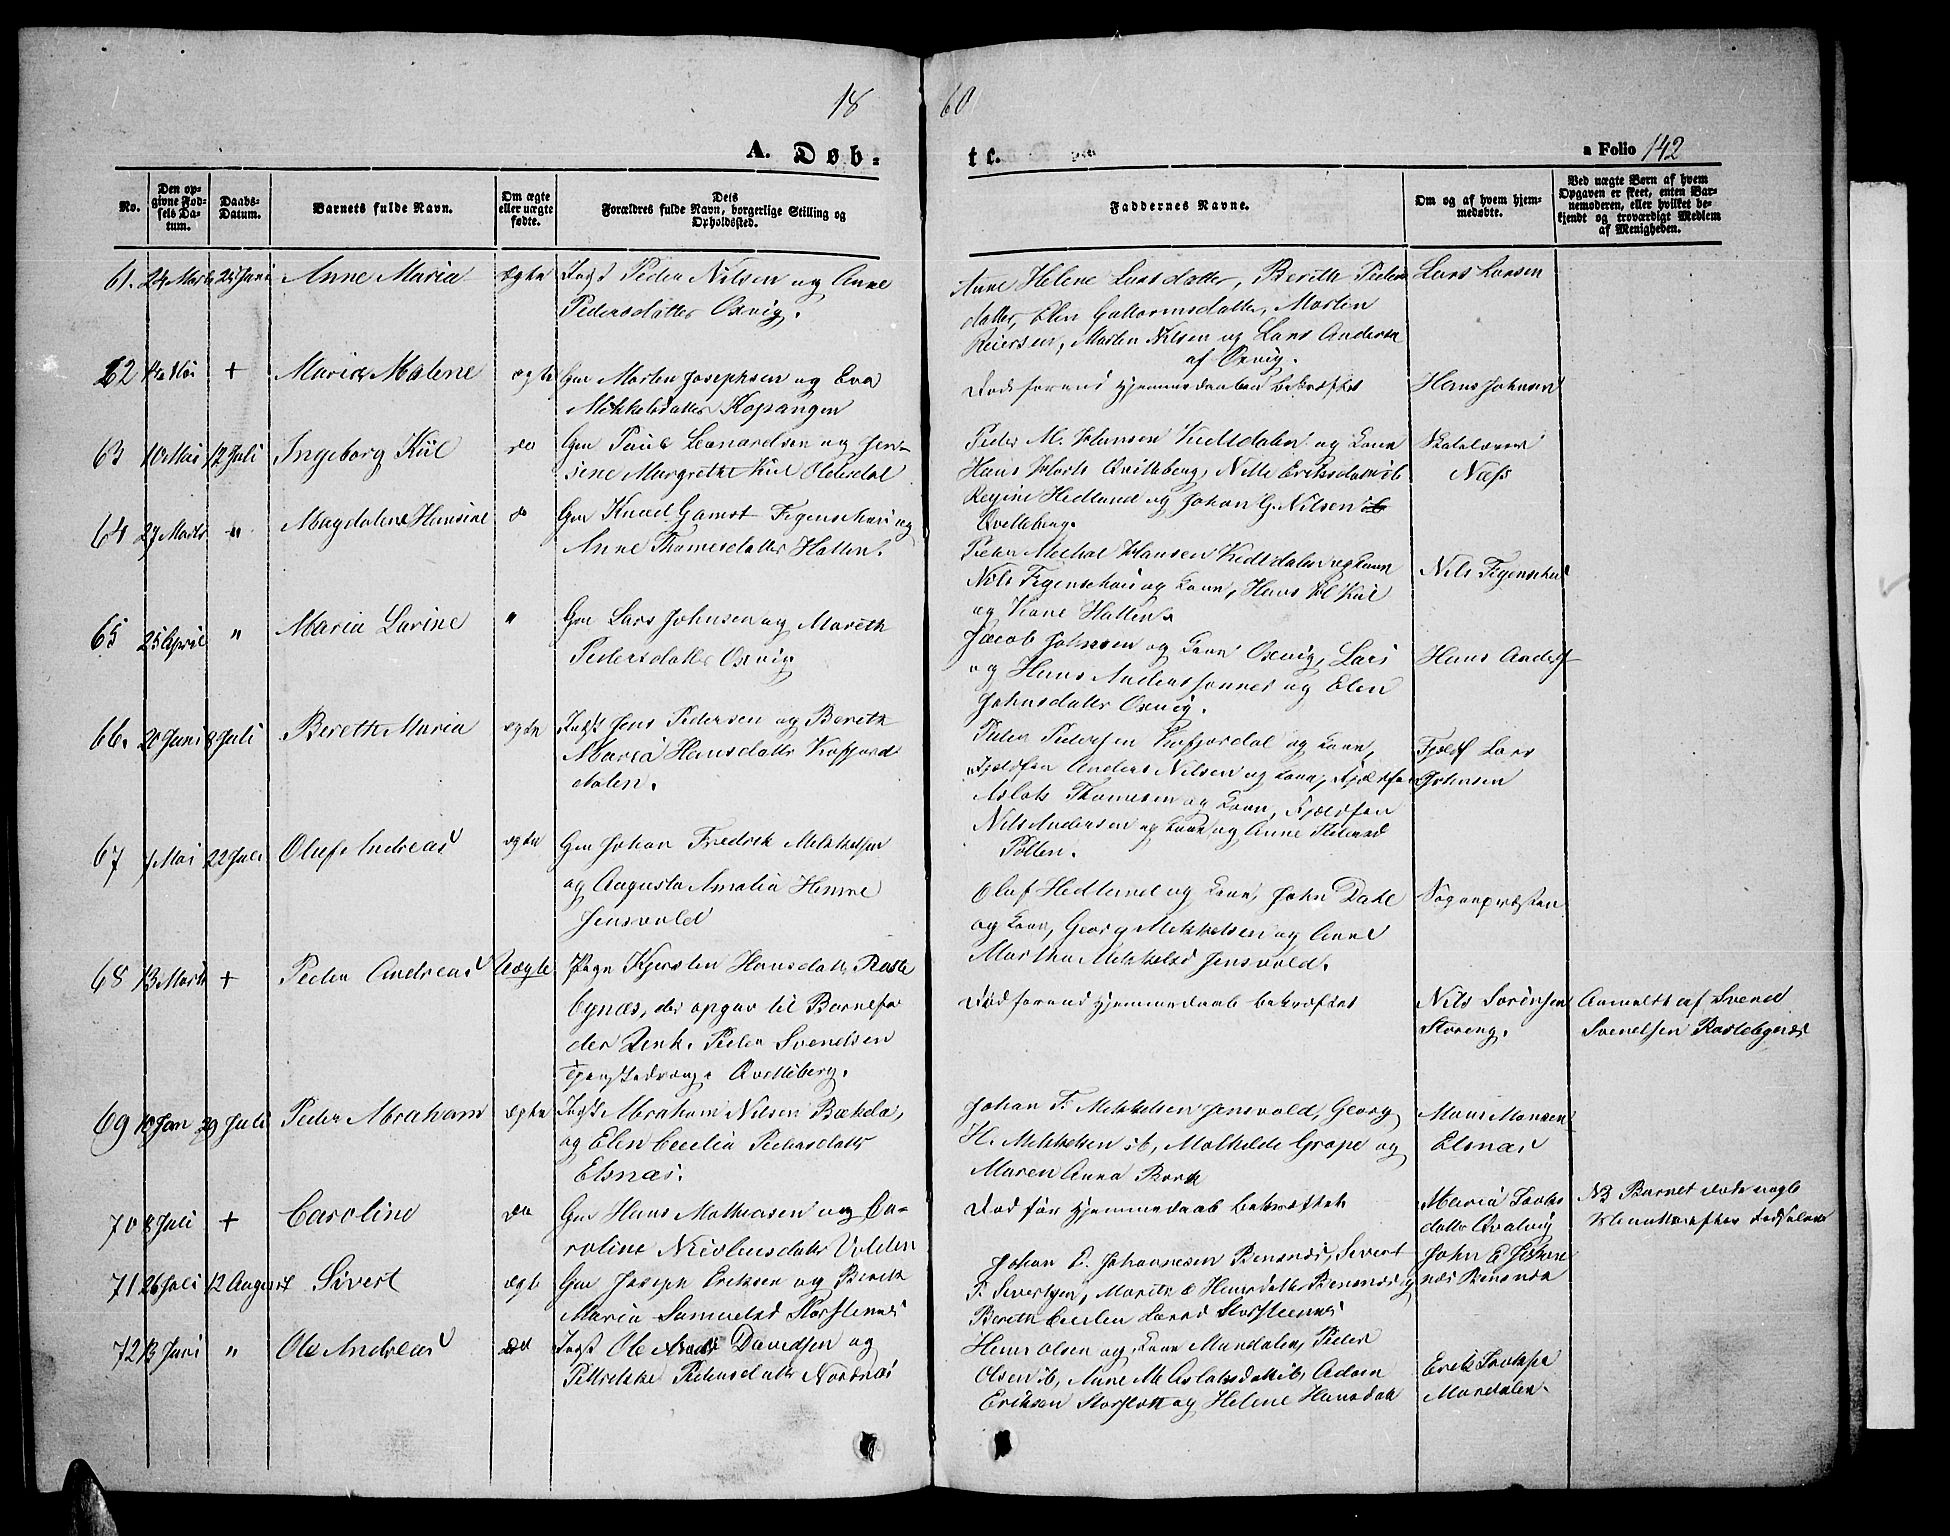 18 60
A. Døb- te. a Folio 142
No. | Den opgivne Fødsels Datum. | Daabs-Datum. | Barnets fulde Navn. | Om ægte eller uægte fødte. | Dets Forældres fulde Navn, borgerlige Stilling og Opholdssted. | Faddernes Navne. | Om og af hvem hjemmedøbte. | Ved uægte Børn af hvem Opgaven er skeet, enten Barnemoderen, eller hvilket bekjendt og troværdigt Medlem af Menigheden.
61. 24 Marts 24 Juni Anne Maria ægte Indst Peder Nilsen og Anne
Pedersdatter Oxvig.
Anne Helene Larsdatter, Bereth Peders
datter, Elen Guttormsdatter, Morten
Reiersen, Morten Nilsen og Lars Andersen
af Oxvig.
Lars Larsen
62 Mai + Maria Malene ægte Gm Morten Josephsen og Eva
Mikkelsdatter Kopangen
Død forend Hjemmedaaben bekræftet
Hans Johnsen
63 10 Mai 12 Juli Ingeborg Kiil do Gm Paul Leonardsen og Jen-
sine Margrethe Kiil Olderdal
Peder M. Hansen Kedtdalen og Kone
Hans Qvitteberg, Nille Eriksdatter ib
Regine Hedlund og Johan G. Nilsen ib
Qvitteberg.
Skolelærer
Næss
64 27 Marts " Magdalene Hansine do Gm Knud Gamst Figenschau og
Anne Thomesdatter Hatten.
Peder Michal Hansen Kedtdalen og Kone
Nils Figenschau og Kone, Hans Kiil
og Kone Hatten.
Nils Figenschau
65 25 April " Maria Lavine " Gm Lars Johnsen og Mareth
Pedersdatter Oxvig
Jacob Johnsen og Kone Oxvig, Lars
og Hans Anderssønner og Elen
Johnsdatter Oxvig.
Hans Anders
66. 20 Juni 8 Juli Bereth Maria ægte Indst Jens Pedersen og Bereth
Maria Hansdatter Kofjord
dalen.
Peder Pedersen Kofjordal og Kone,
Anders Nilsen og Kone,
Aslak Thomesen og Kone,
Nils Andersen og Kone og Anne
Pollen.
Lars
Johnsen
67 Mai 22 Juli Oluf Andreas ægte Gm Johan Fredrik Mikkelsen
og Augusta Amalia Hemme
Jensvold
Oluf Hedlund og Kone, John Dahl
og Kone, Georg Mikkelsen og Anne
Martha Mikkelsd Jensvold.
Sognepræsten
68 13 Marts + Peder Andreas Uægte Pigen Kjersten Hansdatter Raste
bynæs, der opgav til Barnefa
der Unk. Peder Svendsen
Tjenstedreng Qvitteberg.
Død forend Hjemmedaab bekræftet
Nils Sørensen
Storeng.
Anmeldt af Svend
Svendsen Rastebynæs
69 10 Jan 29 Juli Peder Abraham ægte Indst Abraham Nilsen Bækda,
og Elen Cecilia Pedersdatter
Elsnæs.
Johan F. Mikkelsen Jensvold, Georg
H. Mikkelsen ib, Mathilde Grape og
Maren Anna Borch
Mons Monsen
Elsnæs
70 8 Juli + Caroline do Gm Hans Mathiasen og Ca-
roline Nicolaisdatter Volden
Død før Hjemmedaab bekræftet
Maria
datter
NB Barnet døde nogle
Minutter efter Fødselen
71 26 Juli 12 August Sivert ægte Gm Joseph Eriksen og Bereth
Maria Samuelsd Storstennes
Johan E. Johannesen Bensnes, Sivert
F. Sivertsen, Marith Hansdatter Bensnes og
Bereth Cecilie Storsteennes
John E Johan
nes Bensnes
72 13 Juni " Ole Andreas do Indst Ole Davidsen og
Pedersdatter Nordnæs
Hans Olsen og Kone Mandalen, Peder
Olsen ib, Anne M Aslaksdatter ib, Adam
Eriksen og Helene Hansdatt
Erik
Mandalen.